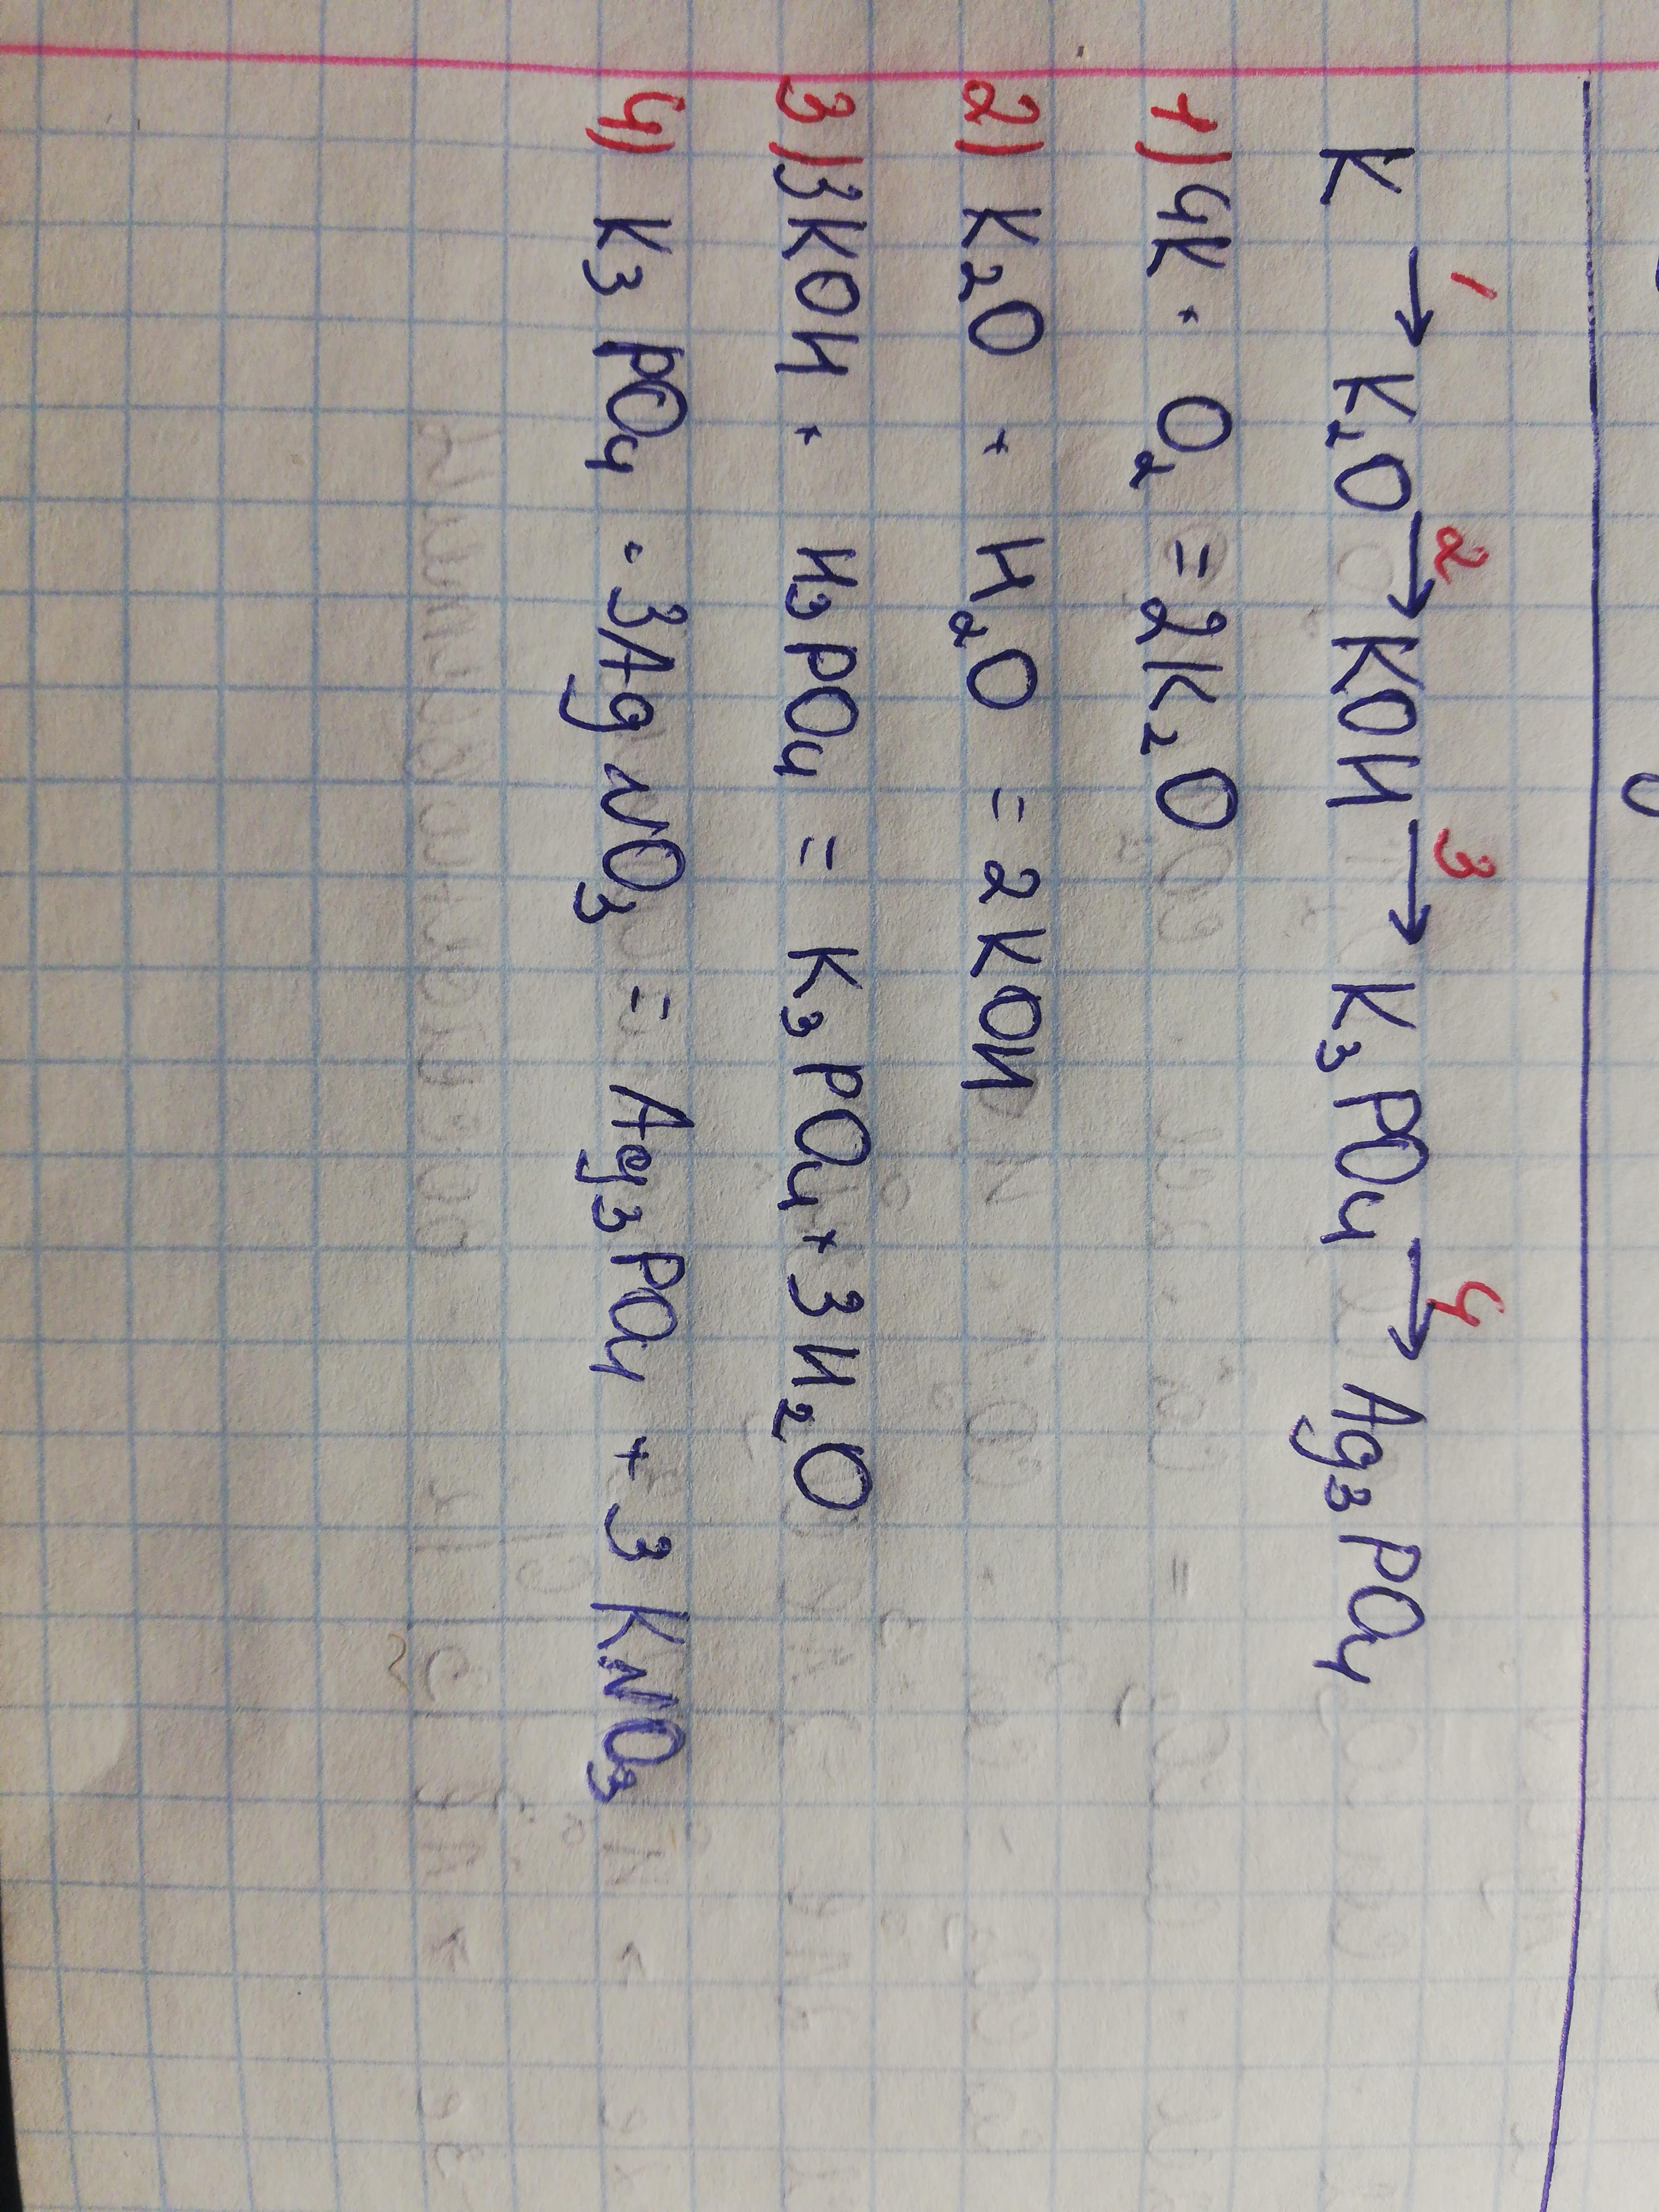 1 2 3 4
K → K₂O → KOH → K₃PO₄ → Ag₃PO₄
1) 4K + O₂ = 2K₂O
2) K₂O + H₂O = 2KOH
3) 3KOH + H₃PO₄ = K₃PO₄ + 3H₂O
4) K₃PO₄ + 3AgNO₃ = Ag₃PO₄ + 3KNO₃